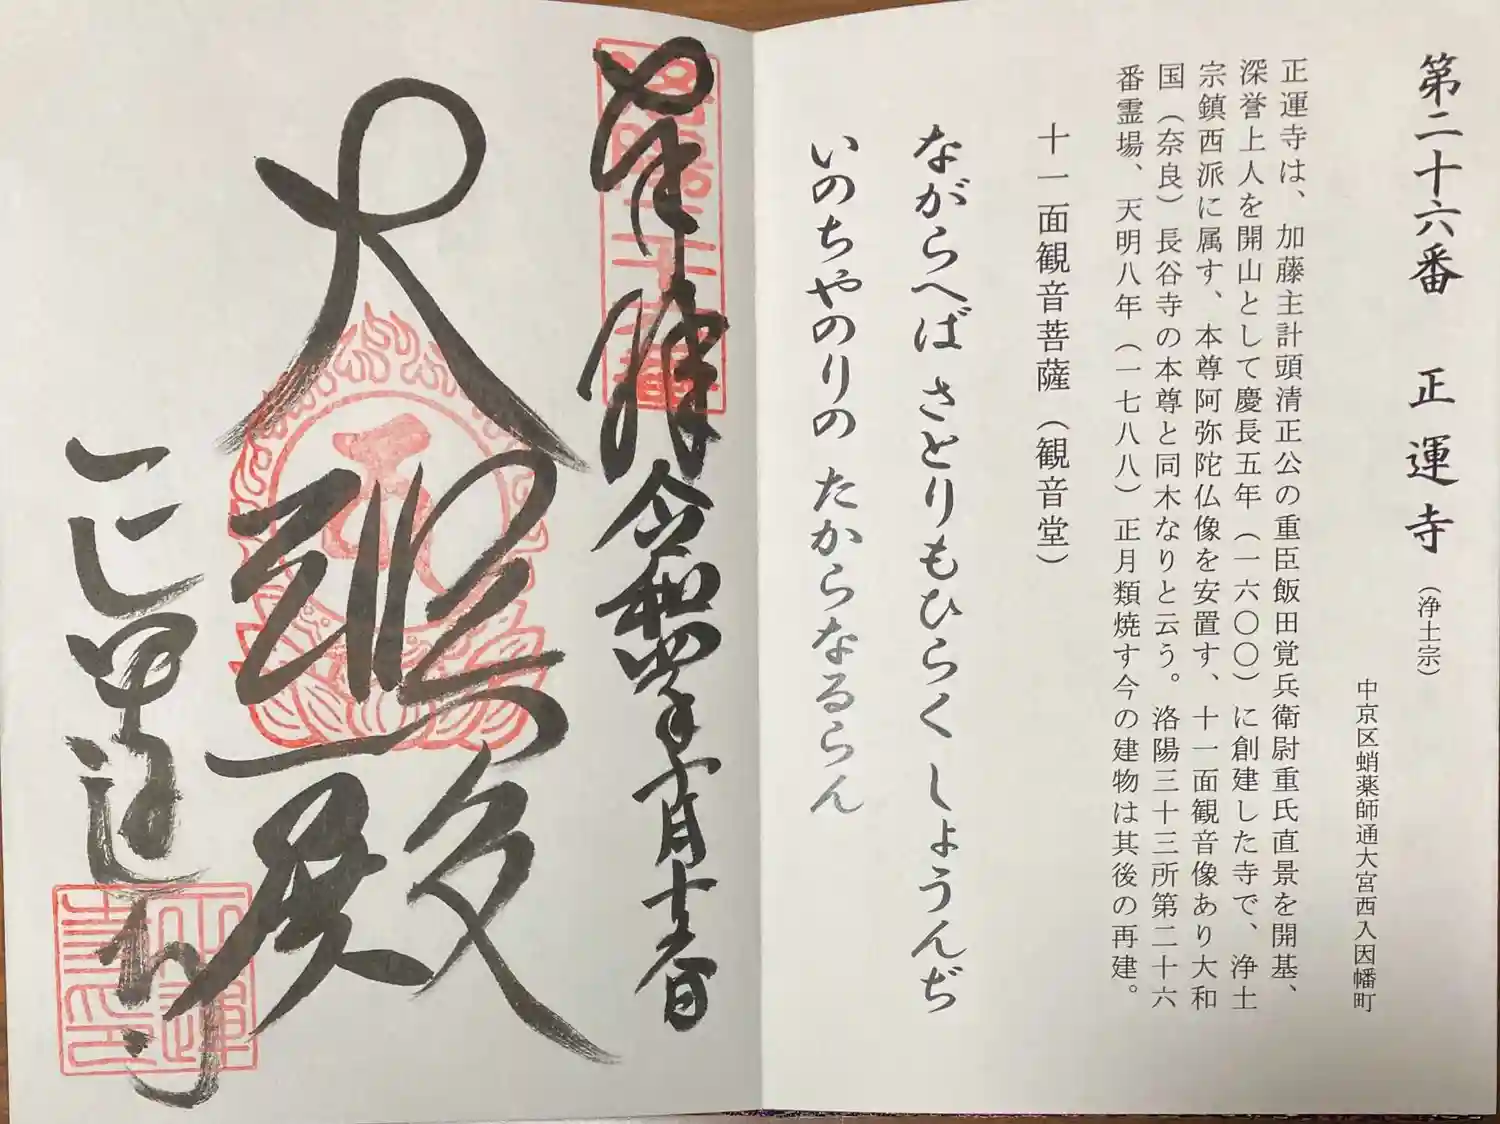 第二十六番 正運寺（浄土宗）
中京区蛸薬師通大宮西入因幡町
正運寺は、加藤主計頭清正公の重臣飯田覚兵衛尉重氏直景を開基、
深誉上人を開山として慶長五年（一六〇〇）に創建した寺で、浄土
宗鎮西派に属す、本尊阿弥陀仏像を安置す、十一面観音像あり大和
国（奈良）長谷寺の本尊と同木なりと云う。洛陽三十三所第二十六
番霊場、天明八年（一七八八）正月類焼す今の建物は其後の再建。
十一面観音菩薩（観音堂）
ながらへば さとりもひらく しようんぢ
いのちやのりの たからなるらん
奉拝 令和四年
大悲殿
正運寺